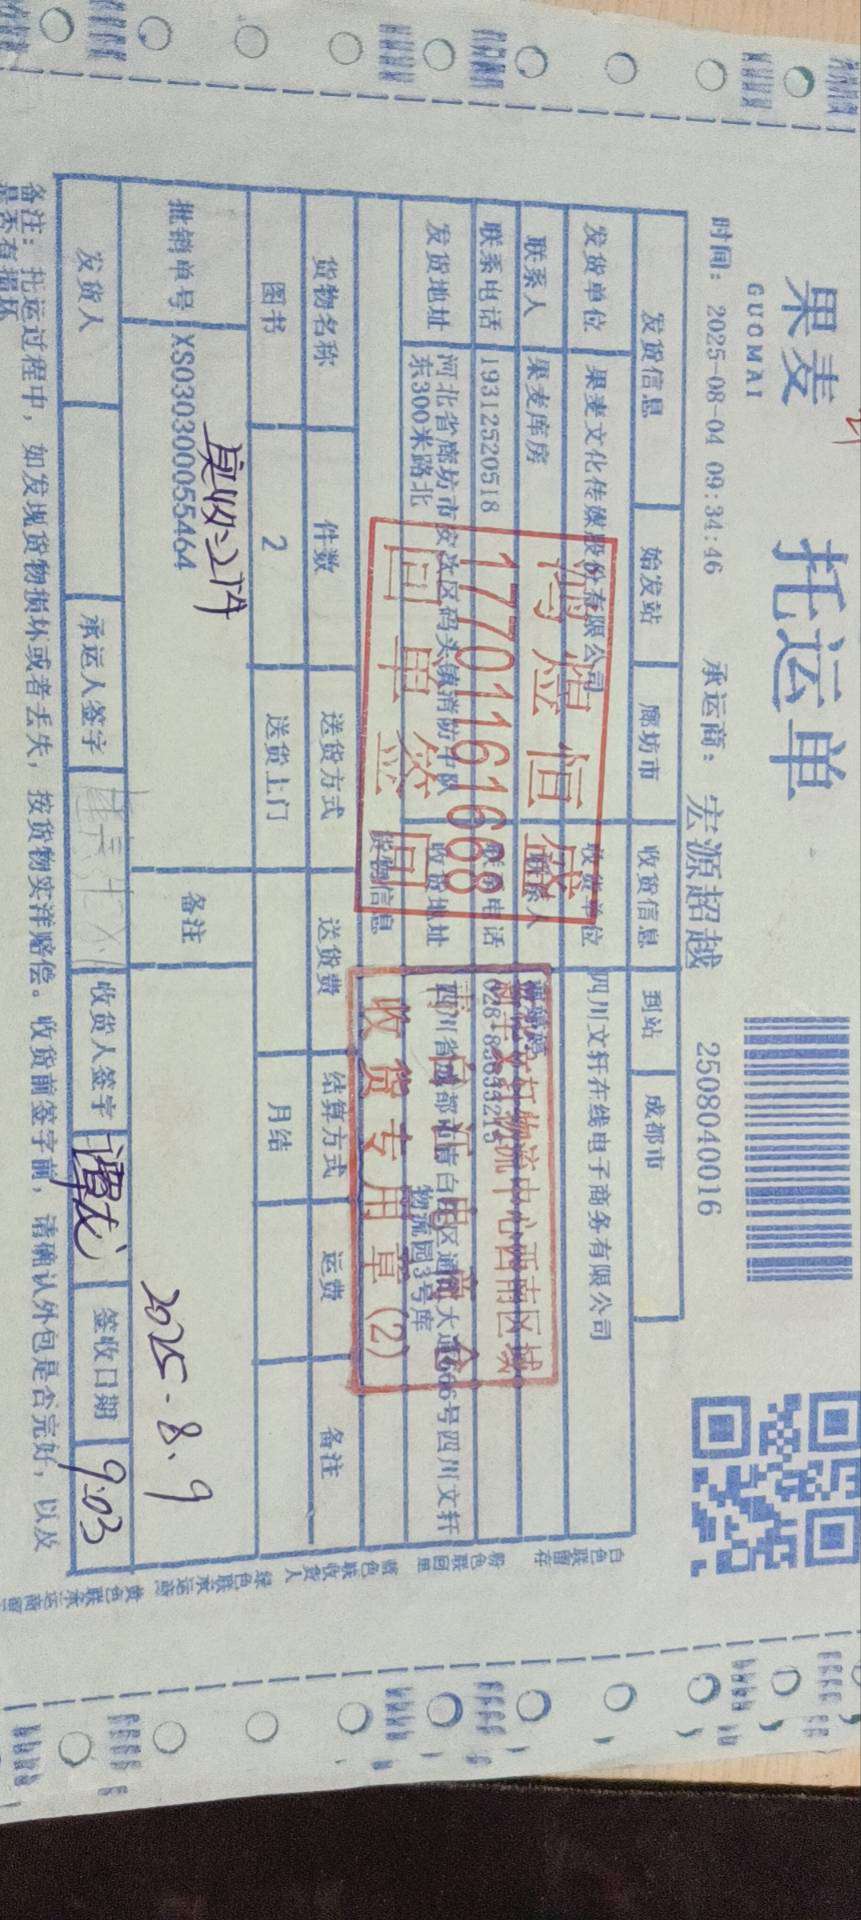 果麦
GUOMAI
托运单
时间：2025-08-04 09:34:46 承运商：宏源超越 2508040016
发货信息 始发站 廊坊市 收货信息 到站 成都市
发货单位 果麦文化传媒股份有限公司 收货单位 四川文轩在线电子商务有限公司
联系人 果麦库房 联系人
联系电话 19312520518 联系电话
发货地址 河北省廊坊市安次区码头镇消防中队
东300米路北
收货地址 四川省成都市青白江区通
号四川文轩
物流园3号库
货物信息
货物名称 件数 送货方式 送货费 结算方式 运费 备注
图书 2 送货上门 月结
批销单号 XS030300055464 备注
实收:2件
2025.8.9
发货人 承运人签字 收货人签字 谭龙 签收日期 9:03
备注：托运过程中，如发现货物损坏或者丢失，按货物实洋赔偿。收货前签字前，请确认外包是否完好，以及
是否有损坏
17701161668
回单签回
轩物流中心西南区域
收货专用章(2)
白色联留存 粉色联回单 蓝色联收货人 绿色联承运商 黄色联承运商留